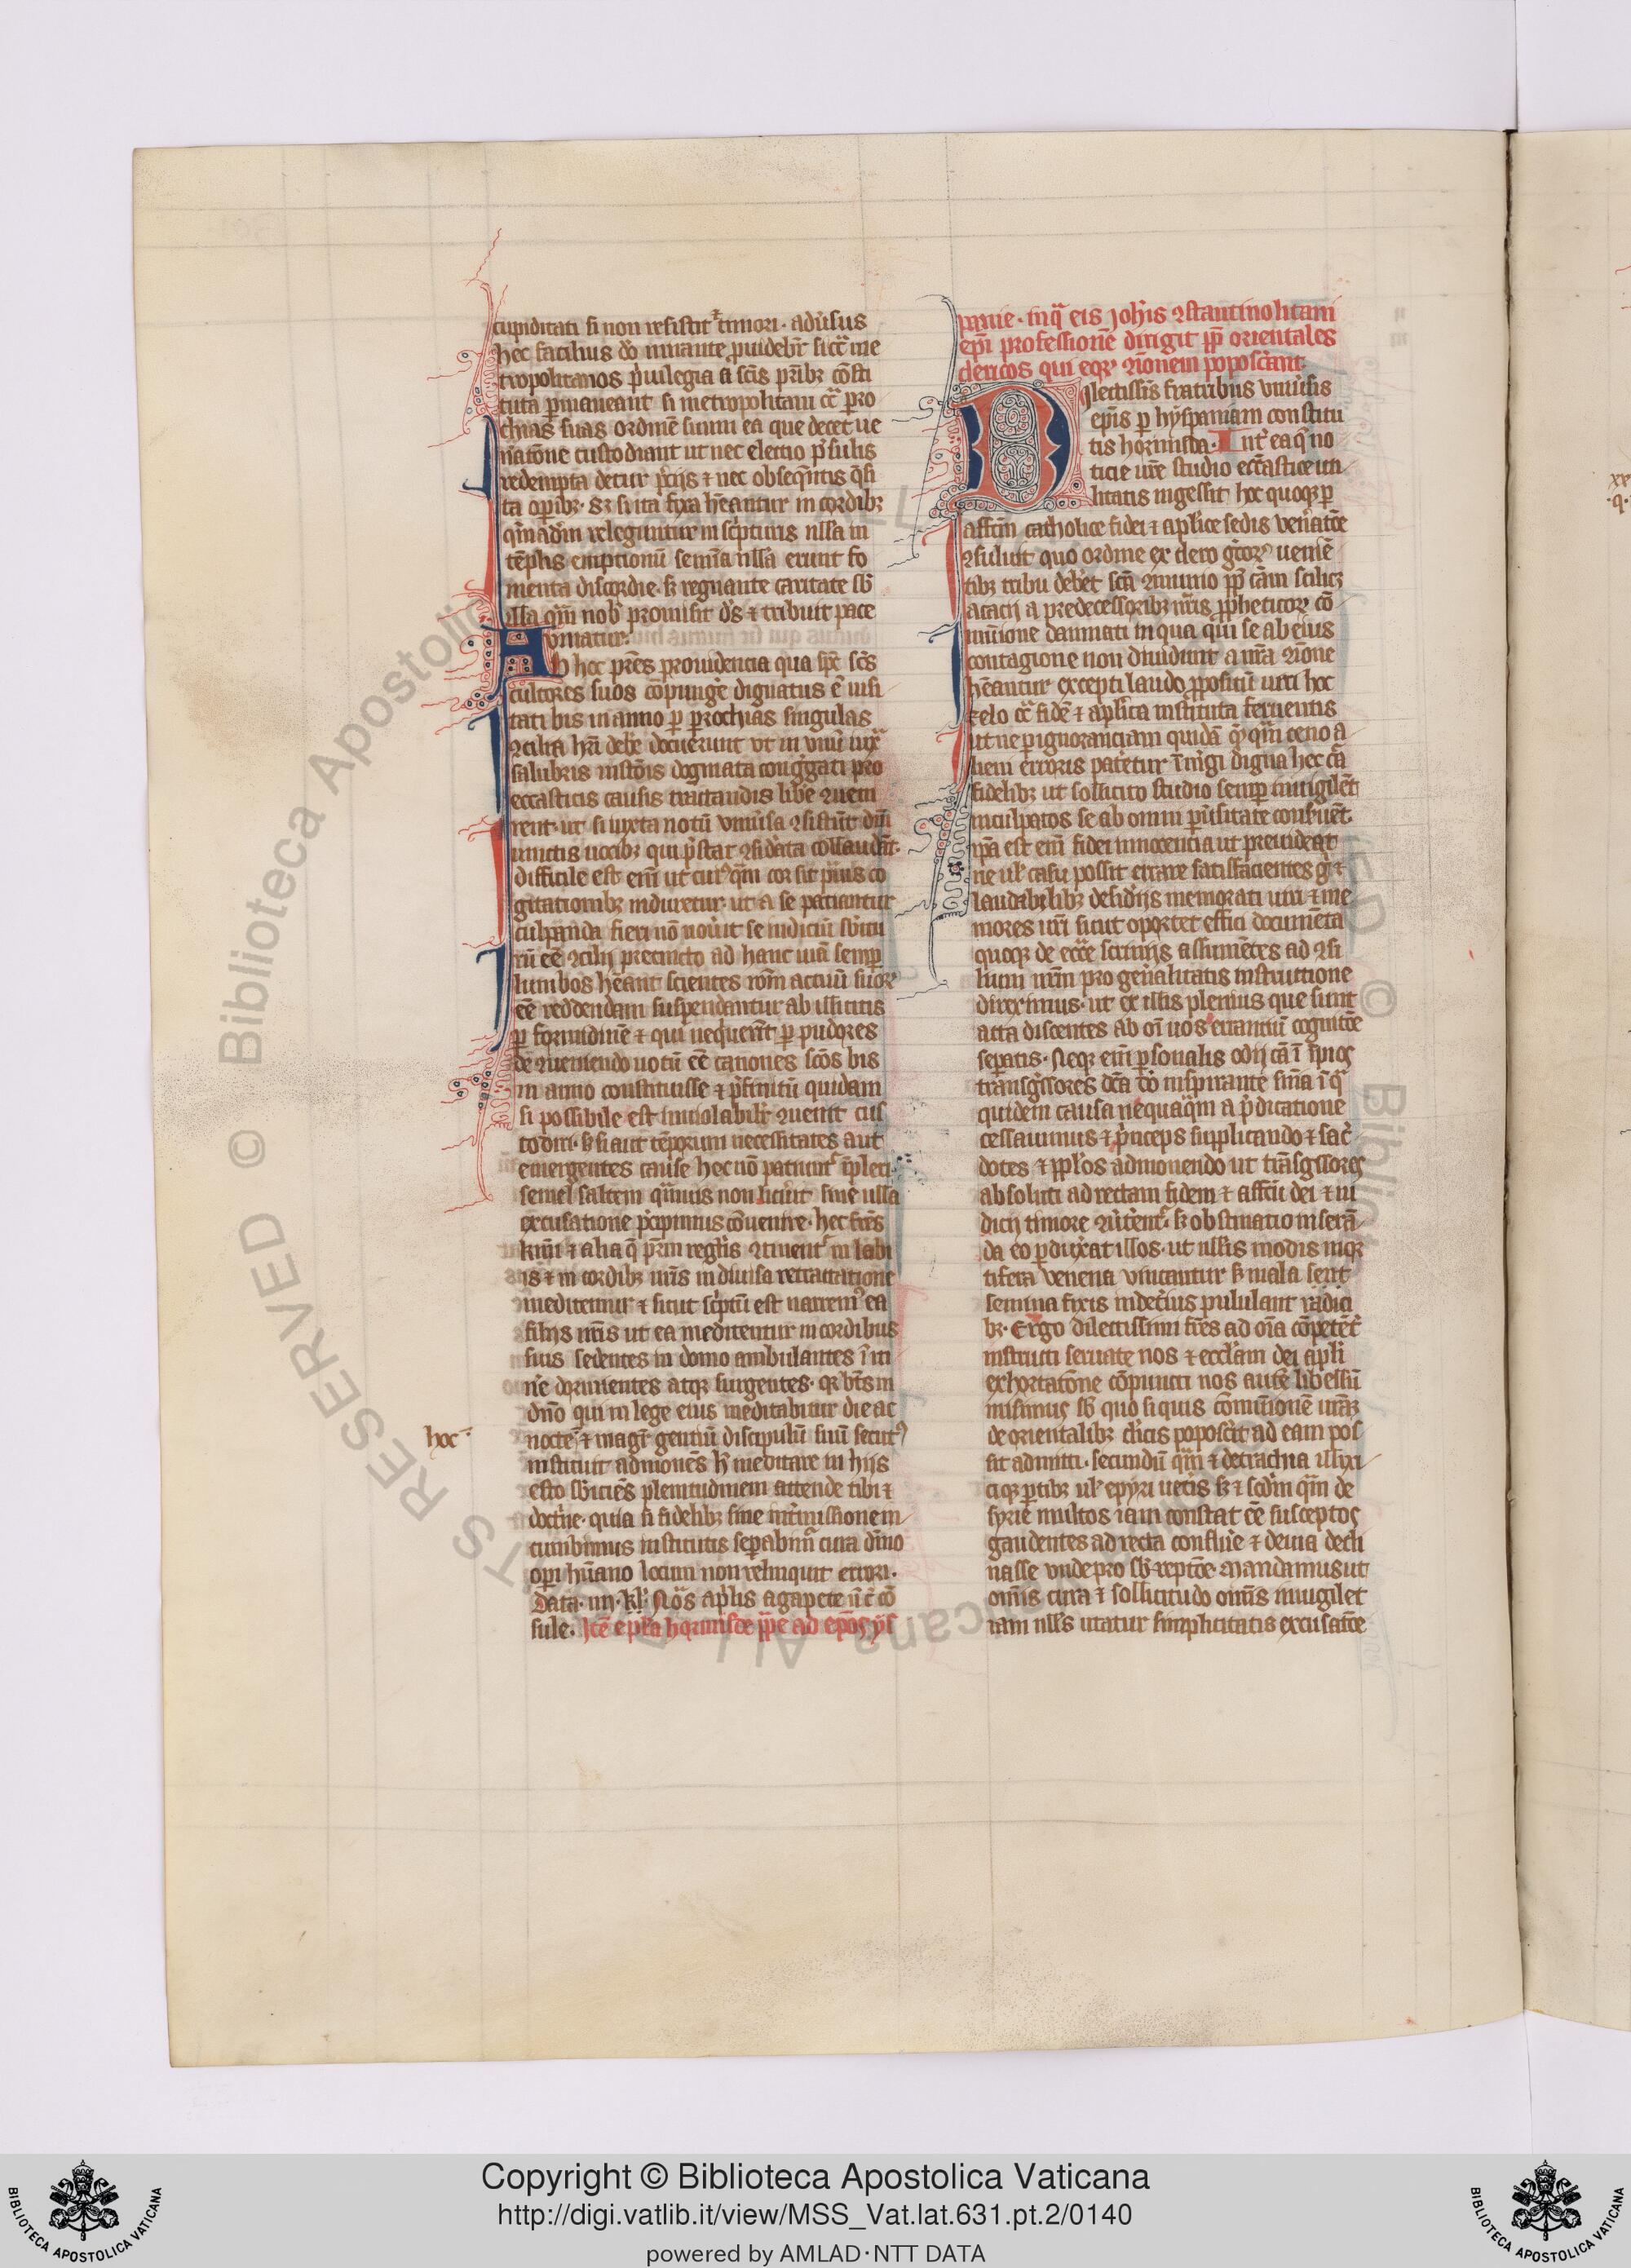 cupiditati si non resistit timori · adūsus
hec facilius do iuuante puidebr̄ si cc̄ me
tropolitanos p̄uilegia a sc̄is pr̄ibꝫ cōsti
tuta ꝑmaneant si metropolitani cc̄ pro
chias suas ordinē suum ea que decet ue
n̄atōne custodiant ut nec electio p̄sulis
redempta detur p̄cijs ⁊ nec obseqn̄tis q̄si
ta op̄ibꝫ · sꝫ si ita fixa hēantur in cordibꝫ
qm̄adm̄ releguntur in scpturis nll̄a in
tēplis emptionū semīa nll̄a erunt fo
menta discordie · sꝫ regnante caritate sb̄
illa qm̄ nob̄ promisit dn̄s ⁊ tribuit pace
vmatur ·
Ab hoc pr̄es prouidencia qua spē sc̄s
cultores suos cōpunge dignatus ē uisi
tati bis in anno ꝑ ꝑrochias singulas
ꝯcilia hr̄i debe docuerunt vt in vnū iux
salubris instōis dogmata congᵍati pro
eccasticis causis tractandis lib̄e ꝯueni
rent · ut si iuxta notū vniūsa ꝯsistūt dn̄i
unictis uocibꝫ qui p̄star ꝯsidata collaudēt ·
difficile est enī ut cuiꝰ qm̄ cor sit p̄uis co
gitationibꝫ induretur · ut a se patiantur
culpanda fieri nō nouīt se iudiciū sb̄itu
rū cē ꝯcilij precincto ad hanc uiā semꝑ
lumbos hēant scientes rōm̄ actuū suoꝝ
cē reddendam suspendantur ab illicitis
ꝑ formidinē ⁊ qui nequeāt ꝑ pudores
de ꝯueniendo uotū cē canones sc̄os bis
in anno constituisse ⁊ p̄finitū quidam
si possibile est inuiolabilr̄ ꝯuenit cus
todiri · sꝫ si aut tēporum necessitates aut
emergentes cause hec nō patiunt̄ īpleri
semel saltem qm̄uis non licuit sine ulla
excusatione p̄cipimus cōuenire · hec fr̄es
km̄i ⁊ alia q̄ pr̄m regl̄is ꝯtinent̄ in labi
is ⁊ in cordibꝫ uīs indiuisa retractatione
meditemur ⁊ sicut scptū est narremꝰ ea
filijs nr̄is ut ea meditentur in cordibus
suis sedentes in domo ambulantes ī iti
n̄e dormientes atqꝫ surgentes · qꝫ bt̄s in
dn̄o qui in lege eius meditabitur die ac
nocte ⁊ magr̄ gentiū discipulū suū secutꝰ
hoc ·
instituit admonēs h̄ meditare in hijs
esto sb̄iciēs plenitudinem attende tibi ⁊
doctn̄e · quia si fidelibꝫ sine int̄missione in
cumbimus institutis seꝑabim̄ cura dīno
oꝑi hūano locum non relinquit errori ·
Data · iiij · kl̄ · Nōs ap̄lis agapete ū c̄ cō
sule · Itē epl̄a hormisde pp̄e ad epōs ys
panie · in q̄ eis Joh̄is ꝯstantinolitani
ep̄i professionē dirigit ꝓp̄ orientales
clericos qui eqꝫ ꝯ̄ionem poposc̄ant
Dlectissīs fratribus vniūsis
ep̄is ꝑ hyspaniam constitu
tis hormisda · Int̄ ea q̄ no
ticie ur̄e studio ecc̄astice uti
litatis ingessit hoc quoqꝫ ꝑ
affc̄m catholice fidei ⁊ apl̄ice sedis ven̄atōe
ꝯsuluit quo ordine ex clero gc̄oꝝ ueniē
tibꝫ tribu deb̄et sc̄a ꝯmunio ꝓp̄ cām scilicꝫ
acacij a predecessoribꝫ nr̄is ꝓpheticoꝝ cō
munione dannati in qua qui se ab eius
contagione non diuidunt a nr̄a ꝯ̄ione
hēantur excepti laudo ꝓpositū uiri hoc
zelo cc̄ fidē ⁊ apl̄ica instituta feruentis
ut ne ꝑ ignoranciam quidā qn̄ qm̄ ceno a
lieni erroris patētur īmgi digna hec cā
fidelibꝫ ut sollicito studio semꝑ inuigilēt
inculpatos se ab omni ꝑuesitate conseruēt ·
ip̄a est enī fidei innocencia ut preuideat
ne ul̄ casu possit errare satisfacientes gͥ ⁊
laudabilibꝫ desid̄ijs memorati uiri ⁊ me
mores nr̄i sicut oportet effici documēta
quoqꝫ de ecc̄e scrinijs assumētes ad ꝯsi
lium nr̄m pro gen̄alitatis instructione
direximus · ut ex illis plenius que sunt
acta discentes ab oī uos errantiū cogitōe
seꝑatis · Neqꝫ enī ꝑsonalis odij cā ī īpios
transgᵉssores dc̄a dō inspirante sm̄a ī q̄
quidem causa nequaq̄m a p̄dicatione
cessauimus ⁊ p̄nceps supplicando ⁊ sac̄
dotes ⁊ ppl̄os admonendo ut trāsgᵉssores
absoluti ad rectam fidem ⁊ affc̄ū dei ⁊ iu
dicij timore ꝯūt̄ent̄ · sꝫ obstinatio miserā
da eo ꝑduxat illos · ut nll̄is modis niqꝫ
tifera venena vincantur sꝫ mala sent
semina fixis indet̄ius pululant radici
bꝫ · Ergo dilectissimi fr̄es ad oīa cōpetēt̄
instructi seruate nos ⁊ eccl̄am dei apl̄i
exhortatōne cōpuncti nos autē libellū
misimus sb̄ quo si quis cōmunionē nr̄aꝫ
de orientalibꝫ cl̄icis poposc̄it ad eam pos
sit admitti · secundū qm̄ ⁊ de tracia illixi
ciqꝫ ꝑtibꝫ ul̄ epyri uet̄is sꝫ ⁊ scdm̄ qm̄ de
syrie multos iam constat cē susceptos
gaudentes ad recta conflue ⁊ deuia decli
nasse vnde pro sb̄reptōe mandamus ut
om̄is cura ⁊ sollicitudo om̄s inuigilet
nam nll̄s utatur simplicitatis excusatōe
Copyright © Biblioteca Apostolica Vaticana
http://digi.vatlib.it/view/MSS_Vat.lat.631.pt.2/0140
powered by AMLAD·NTT DATA
BIBLIOTECA APOSTOLICA VATICANA
BIBLIOTECA APOSTOLICA VATICANA